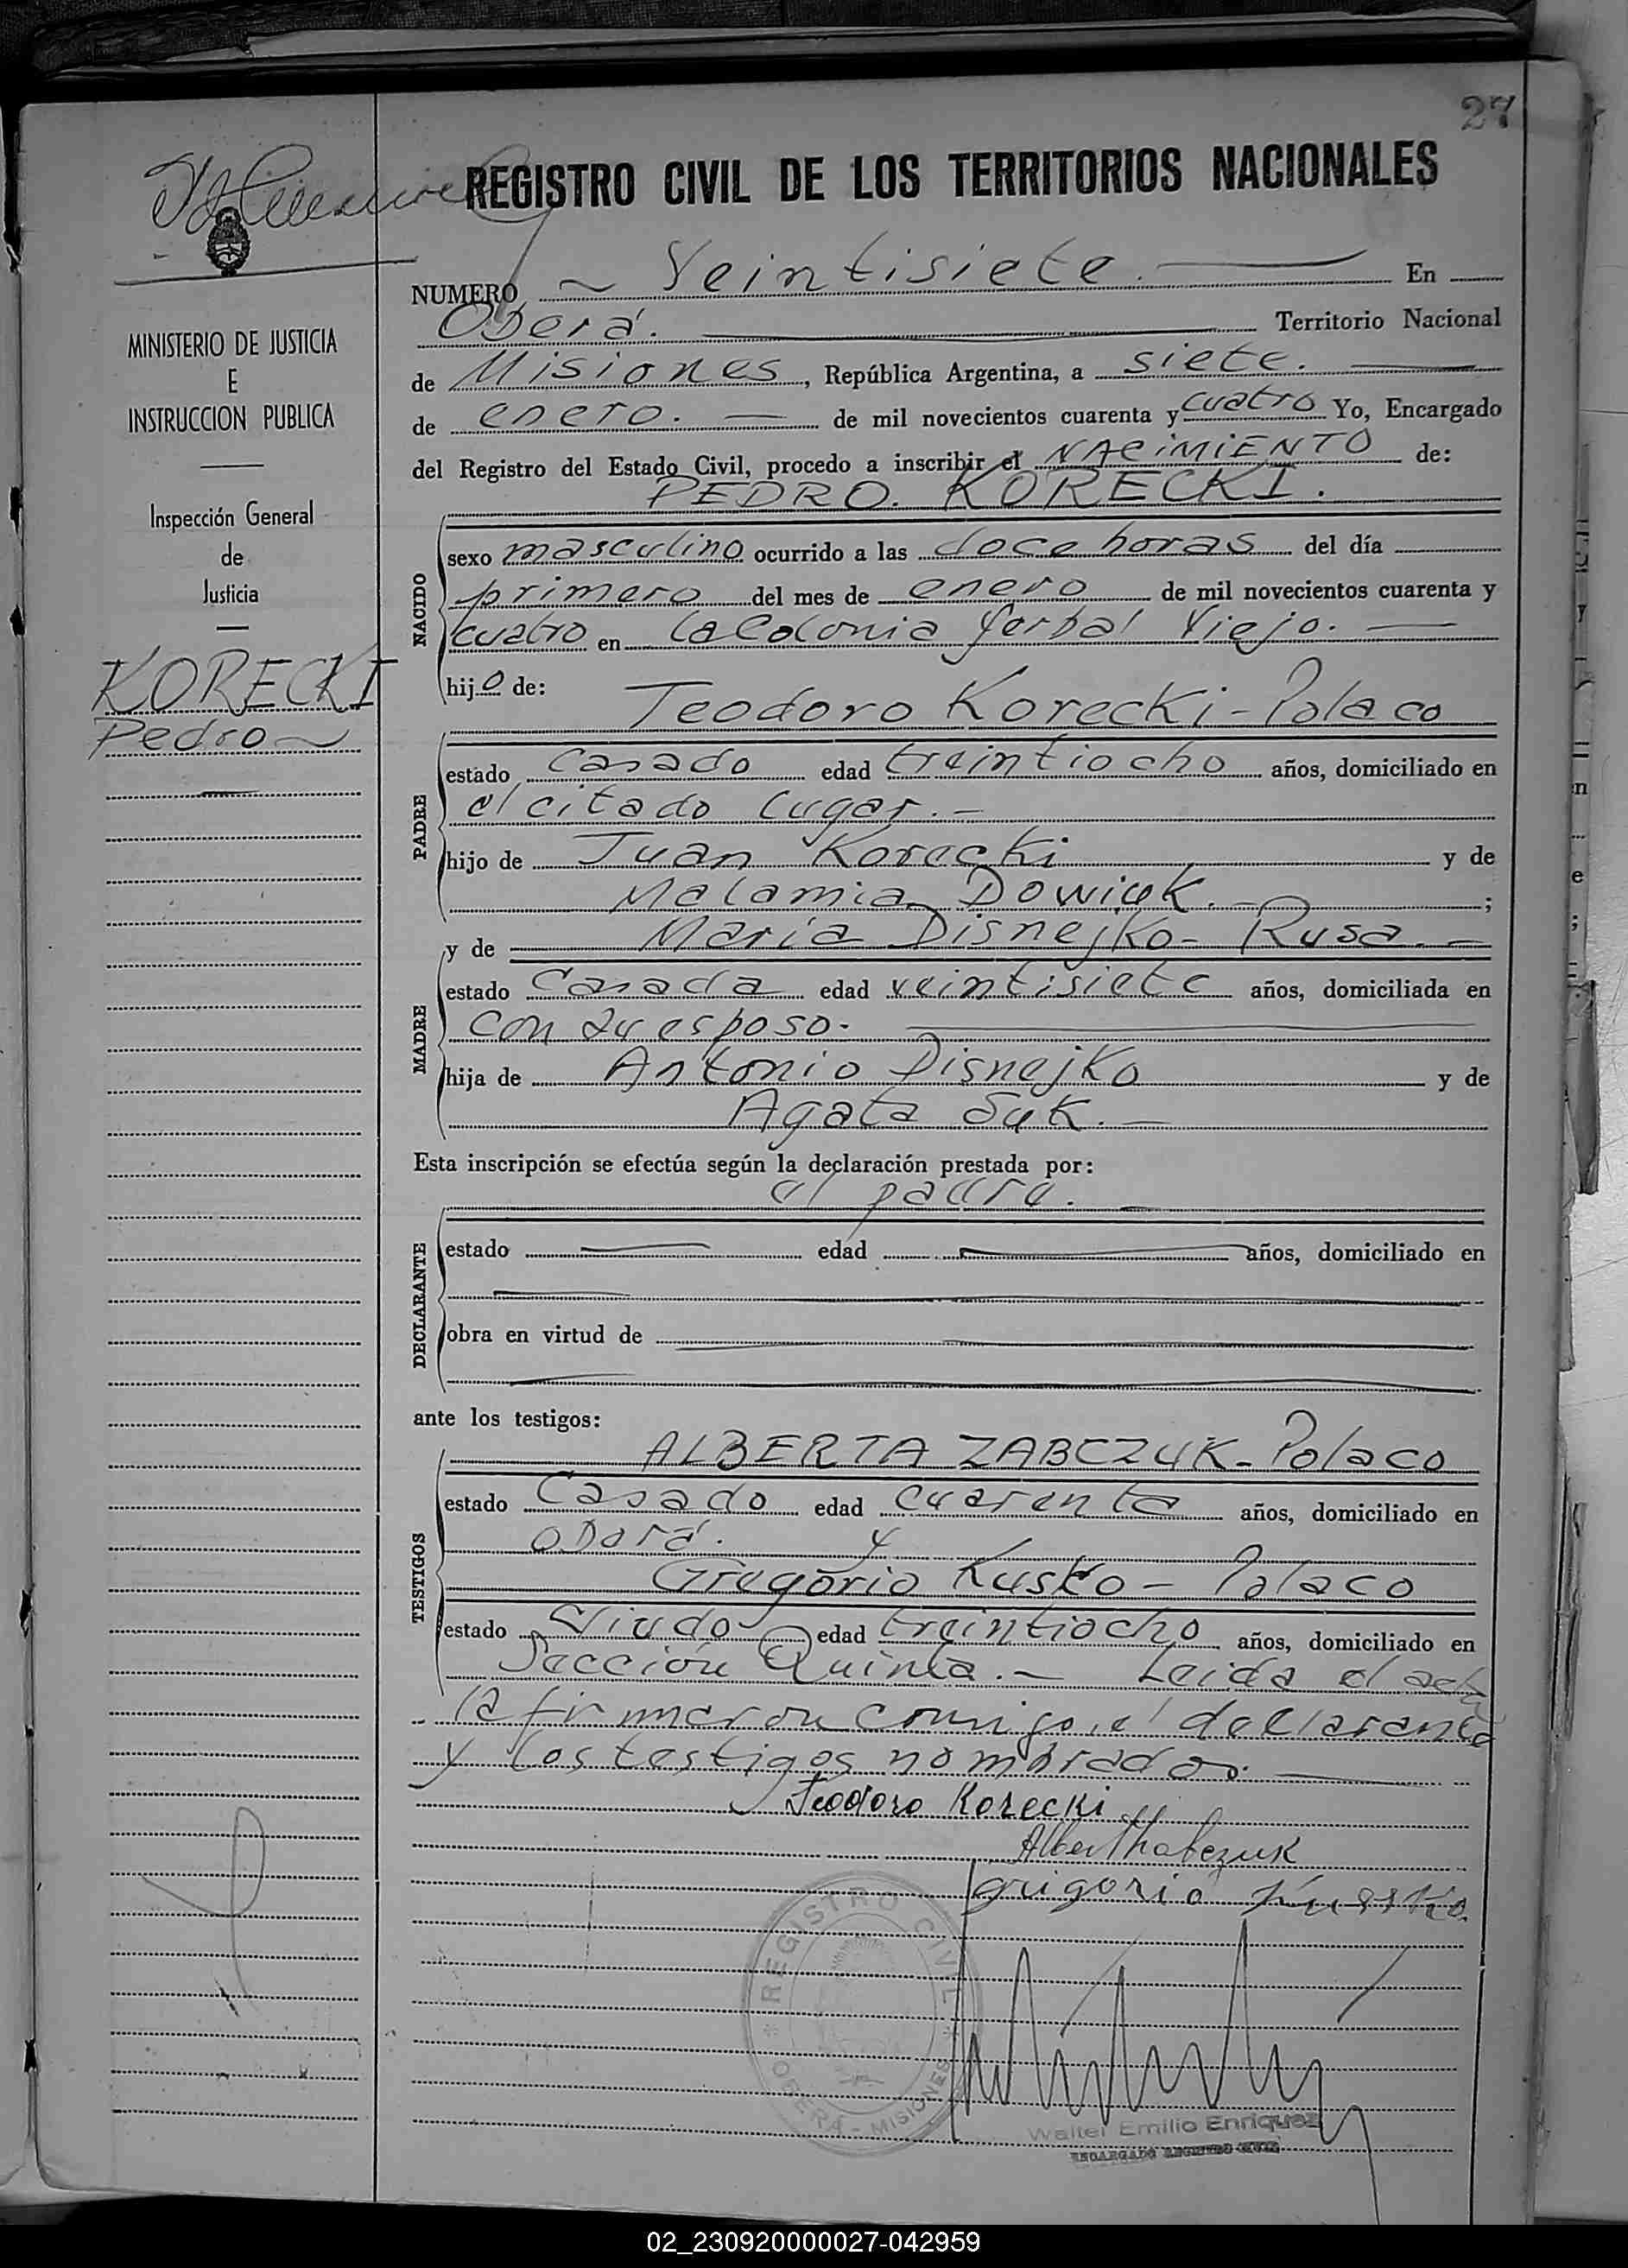 27
REGISTRO CIVIL DE LOS TERRITORIOS NACIONALES
NUMERO Veintisiete. En
Oberá. Territorio Nacional
de Misiones, República Argentina, a siete.
de enero. de mil novecientos cuarenta y cuatro Yo, Encargado
del Registro del Estado Civil, procedo a inscribir el NACIMIENTO de:
PEDRO. KORECKI.
NACIDO
sexo masculino ocurrido a las doce horas del día
primero del mes de enero de mil novecientos cuarenta y
cuatro en la Colonia Yerbal Viejo.
hijo de:
Teodoro Korecki - Polaco
PADRE
estado Casado edad treintiocho años, domiciliado en
el citado lugar.-
hijo de Juan Korecki y de
Malamia Dowiuk.- ;
y de Maria Disnejko - Rusa.-
MADRE
estado Casada edad veintisiete años, domiciliada en
con su esposo.
hija de Antonio Disnejko y de
Agata Suk.-
Esta inscripción se efectúa según la declaración prestada por:
el padre.
DECLARANTE
estado edad años, domiciliado en
obra en virtud de
ante los testigos:
ALBERTA ZABCZUK - Polaco
TESTIGOS
estado Casado edad cuarenta años, domiciliado en
Oberá. y
Gregorio Kusko - Polaco
estado Viudo edad treintiocho años, domiciliado en
Sección Quinta.- Leida el acta
la firmaron conmigo, el declarante
y los testigos nombrados.
Teodoro Korecki
grigorio Kusko
REGISTRO CIVIL
OBERA - MISIONES
Walter Emilio Enriquez
ENCARGADO REGISTRO CIVIL
MINISTERIO DE JUSTICIA
E
INSTRUCCION PUBLICA
Inspección General
de
Justicia
KORECKI
Pedro
02_230920000027-042959